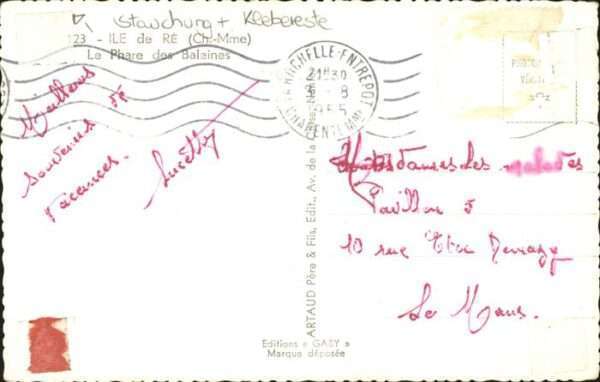 Stauchung + Klebereste
123 - ILE de RÉ (Ch.-Mme)
Le Phare des Baleines
LA ROCHELLE-ENTREPOT
21H30
8
1955
CHARENTE MME
Meilleurs
souvenirs de
vacances.
Lucette
ARTAUD Père & Fils, Edit., Av. de la
Mesdames des malades
Pavillon 5
10 rue
Le Mans.
Editions « GABY »
Marque déposée